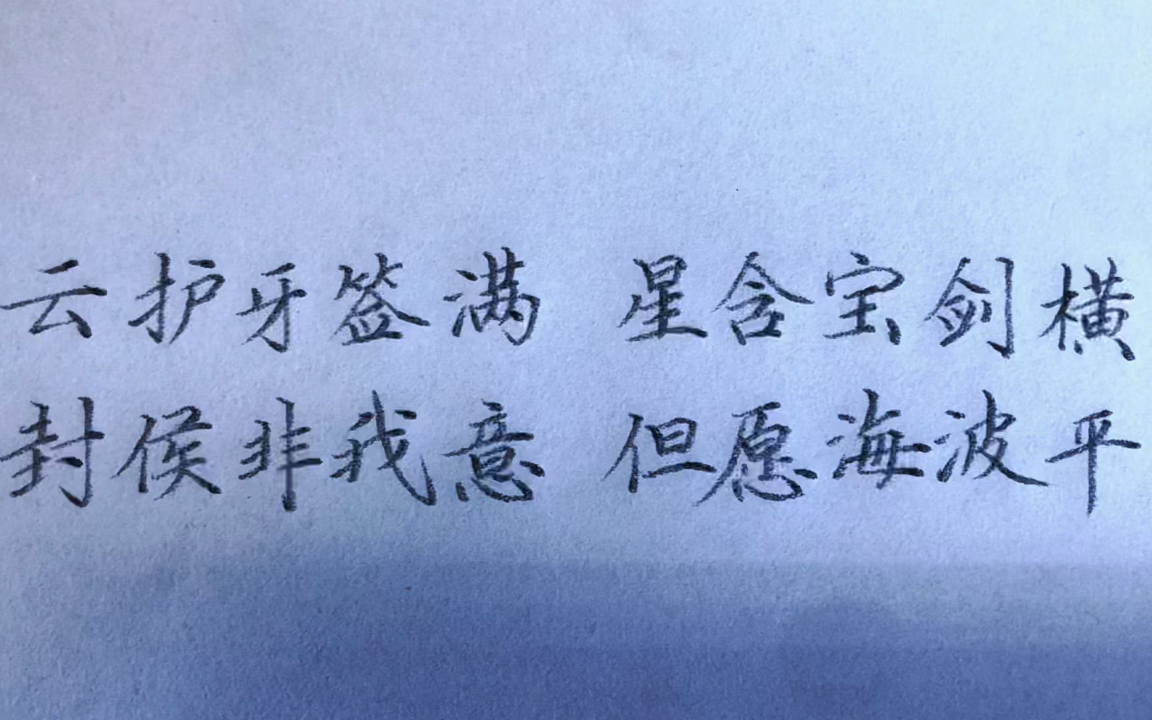 云护牙签满 星含宝剑横
封侯非我意 但愿海波平